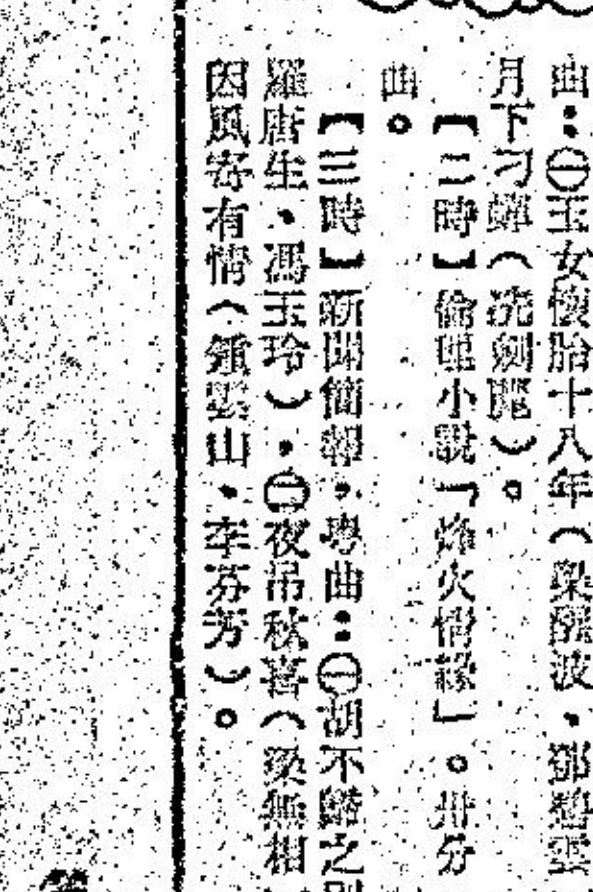 曲：㊀玉女懷胎十八年（梁醒波、鄧碧雲
月下刁蟬（冼劍麗）。
【二時】倫理小說「烽火情緣」。卅分
曲。
【三時】新聞簡報，粤曲：㊀胡不歸之別
羅唐生、馮玉玲），㊁夜吊秋喜（梁無相
因風寄有情（鍾雲山、李芬芳）。